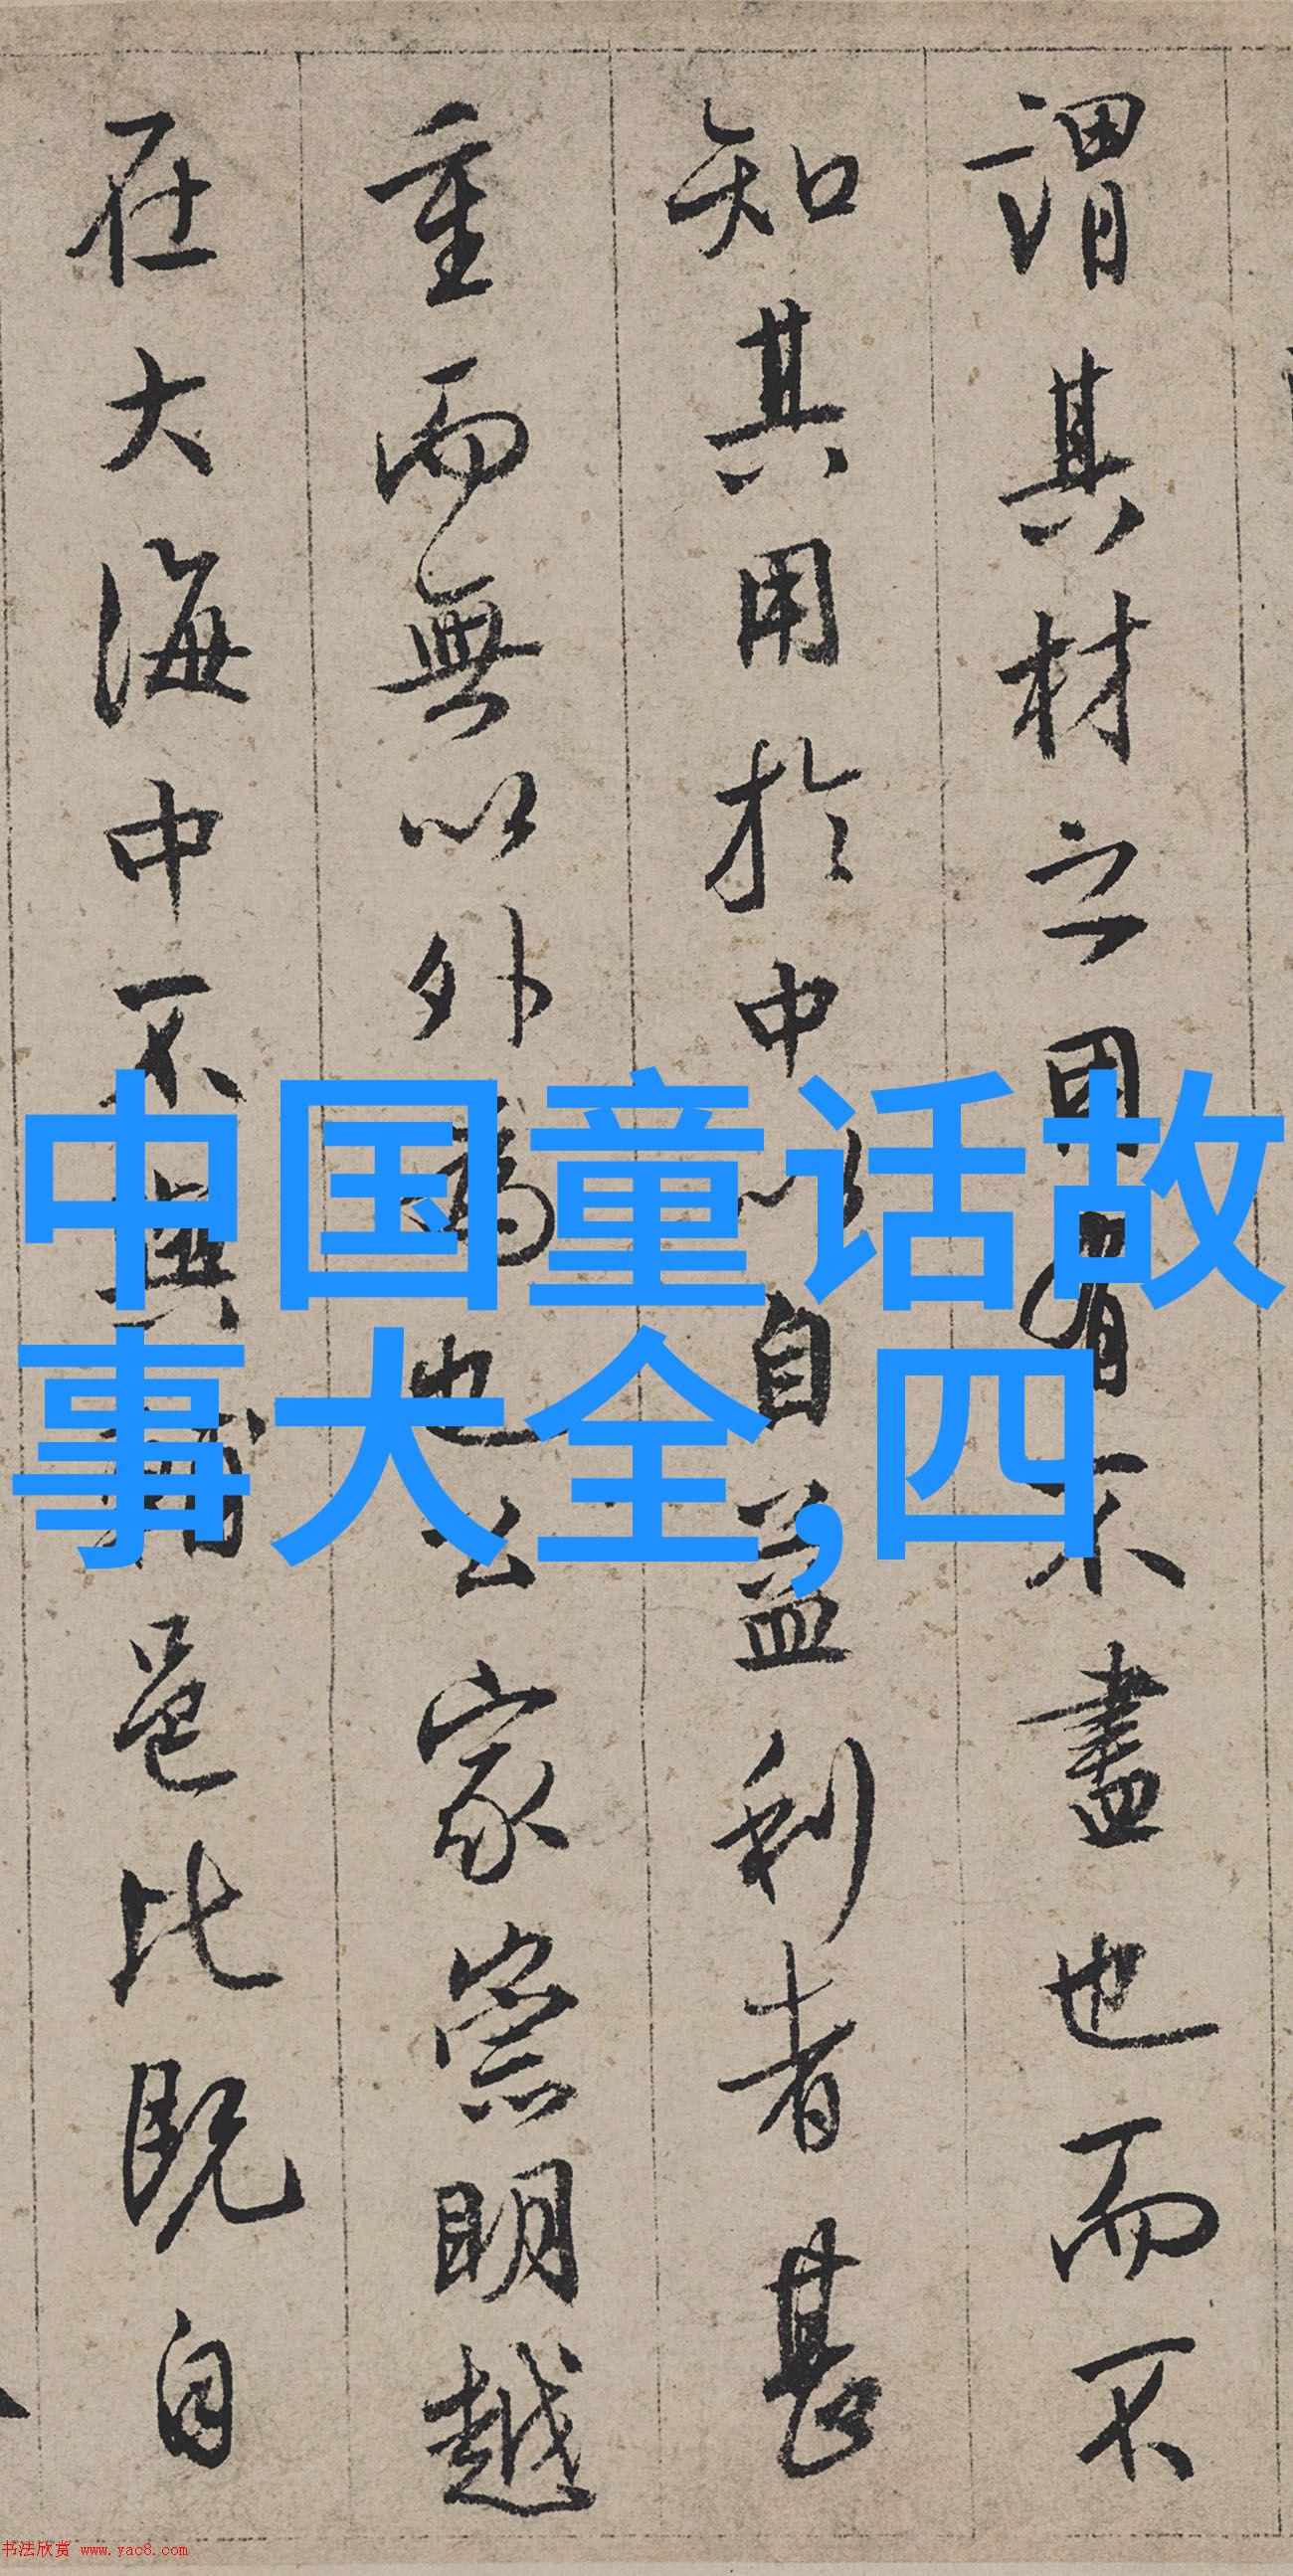 謂其材之用有不盡也而不
知其用於中以自益利者甚
重而無以外為也公家崇明越
在大海中不與邑比既自
中国童话故
事大全,四
书法欣赏 www.yac8.com